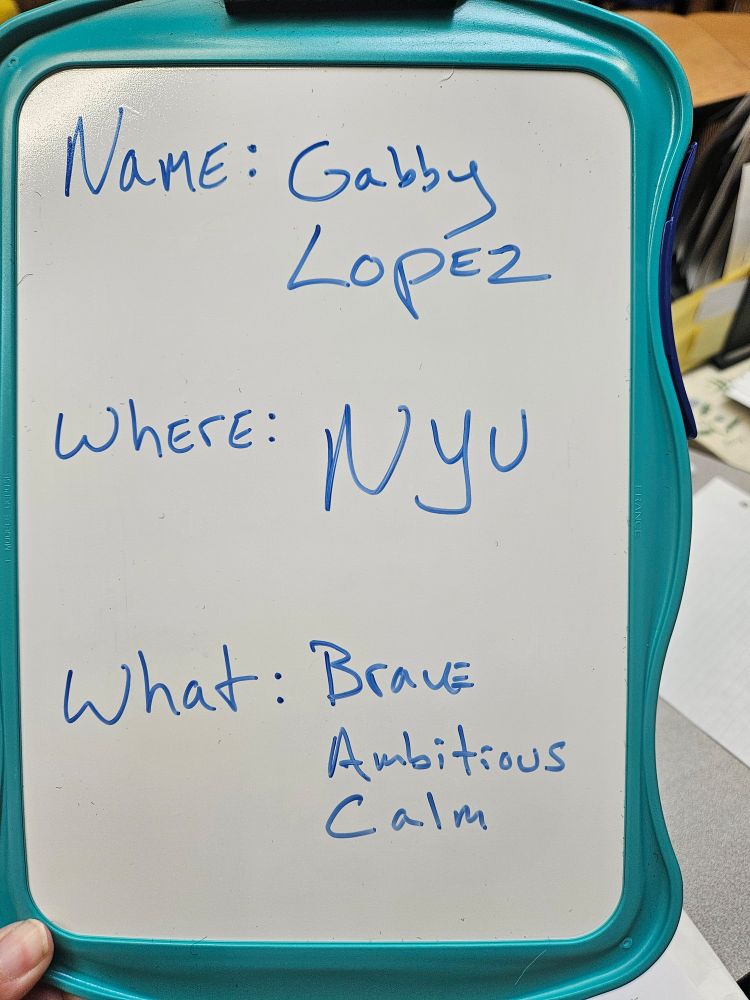 Name: Gabby
Lopez
Where: NYU
What: Brave
Ambitious
Calm
FRANCE